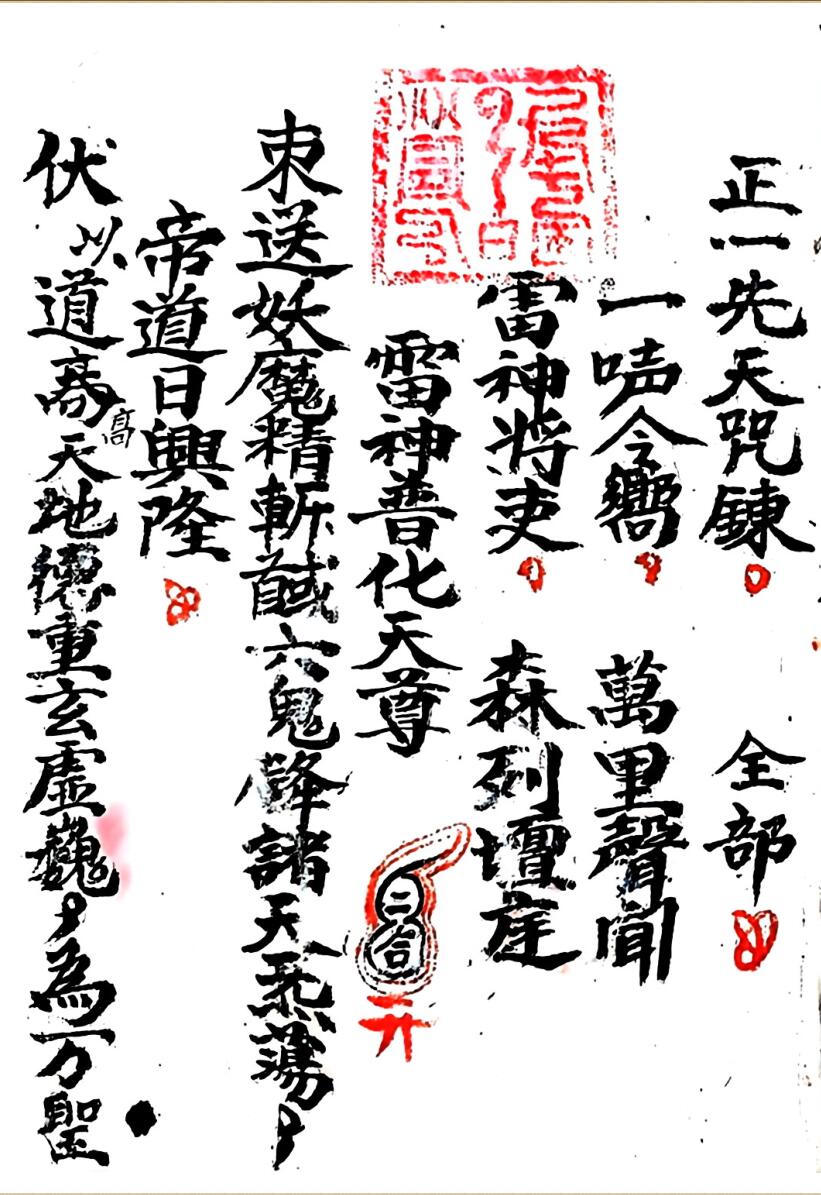 正一先天咒錬　全部
一令嚮　萬里聲聞
雷神將吏　森列壇庭
雷神普化天尊
二合
束送妖魔精斬馘六鬼降諸天炁蕩〻
帝道日興隆
伏以道髙天地德重玄虛巍〻為万聖
髙